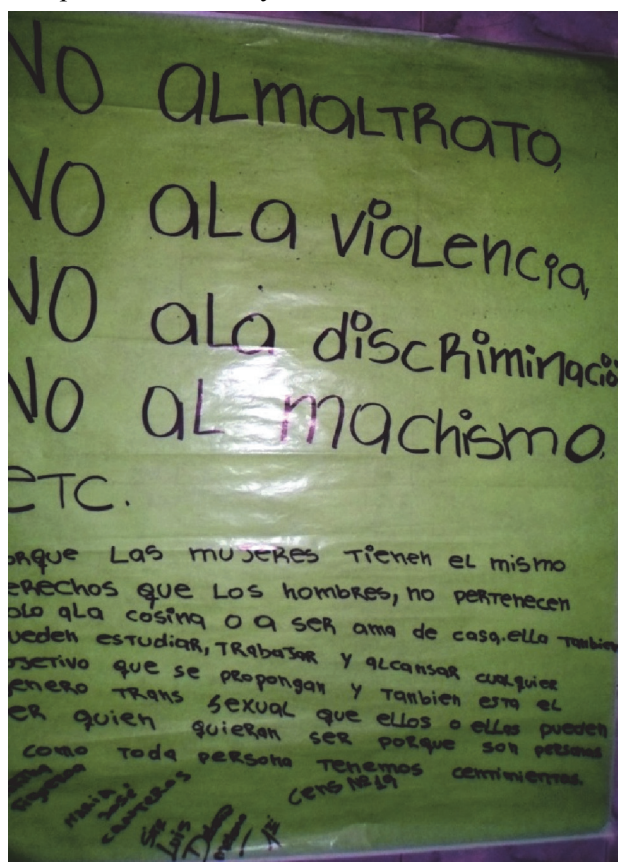 NO ALMALTRATO,
NO ALA violencia,
NO ala discriminació
NO AL machismo,
ETC.
orque Las mujeres Tienen el mismo
erechos que Los hombres, no pertenecen
olo ala cosina o a ser ama de casa.ella Tanbien
ueden estudiar, Trabajar y alcansar cualquier
ojetivo que se propongan y Tanbien esta el
enero Trans sexual que ellos o ellas pueden
er quien quieran ser porque son personas
como Toda persona Tenemos centimientos.
Cens Nº 19
Figueroa
Maria
José
Contreras
Luis